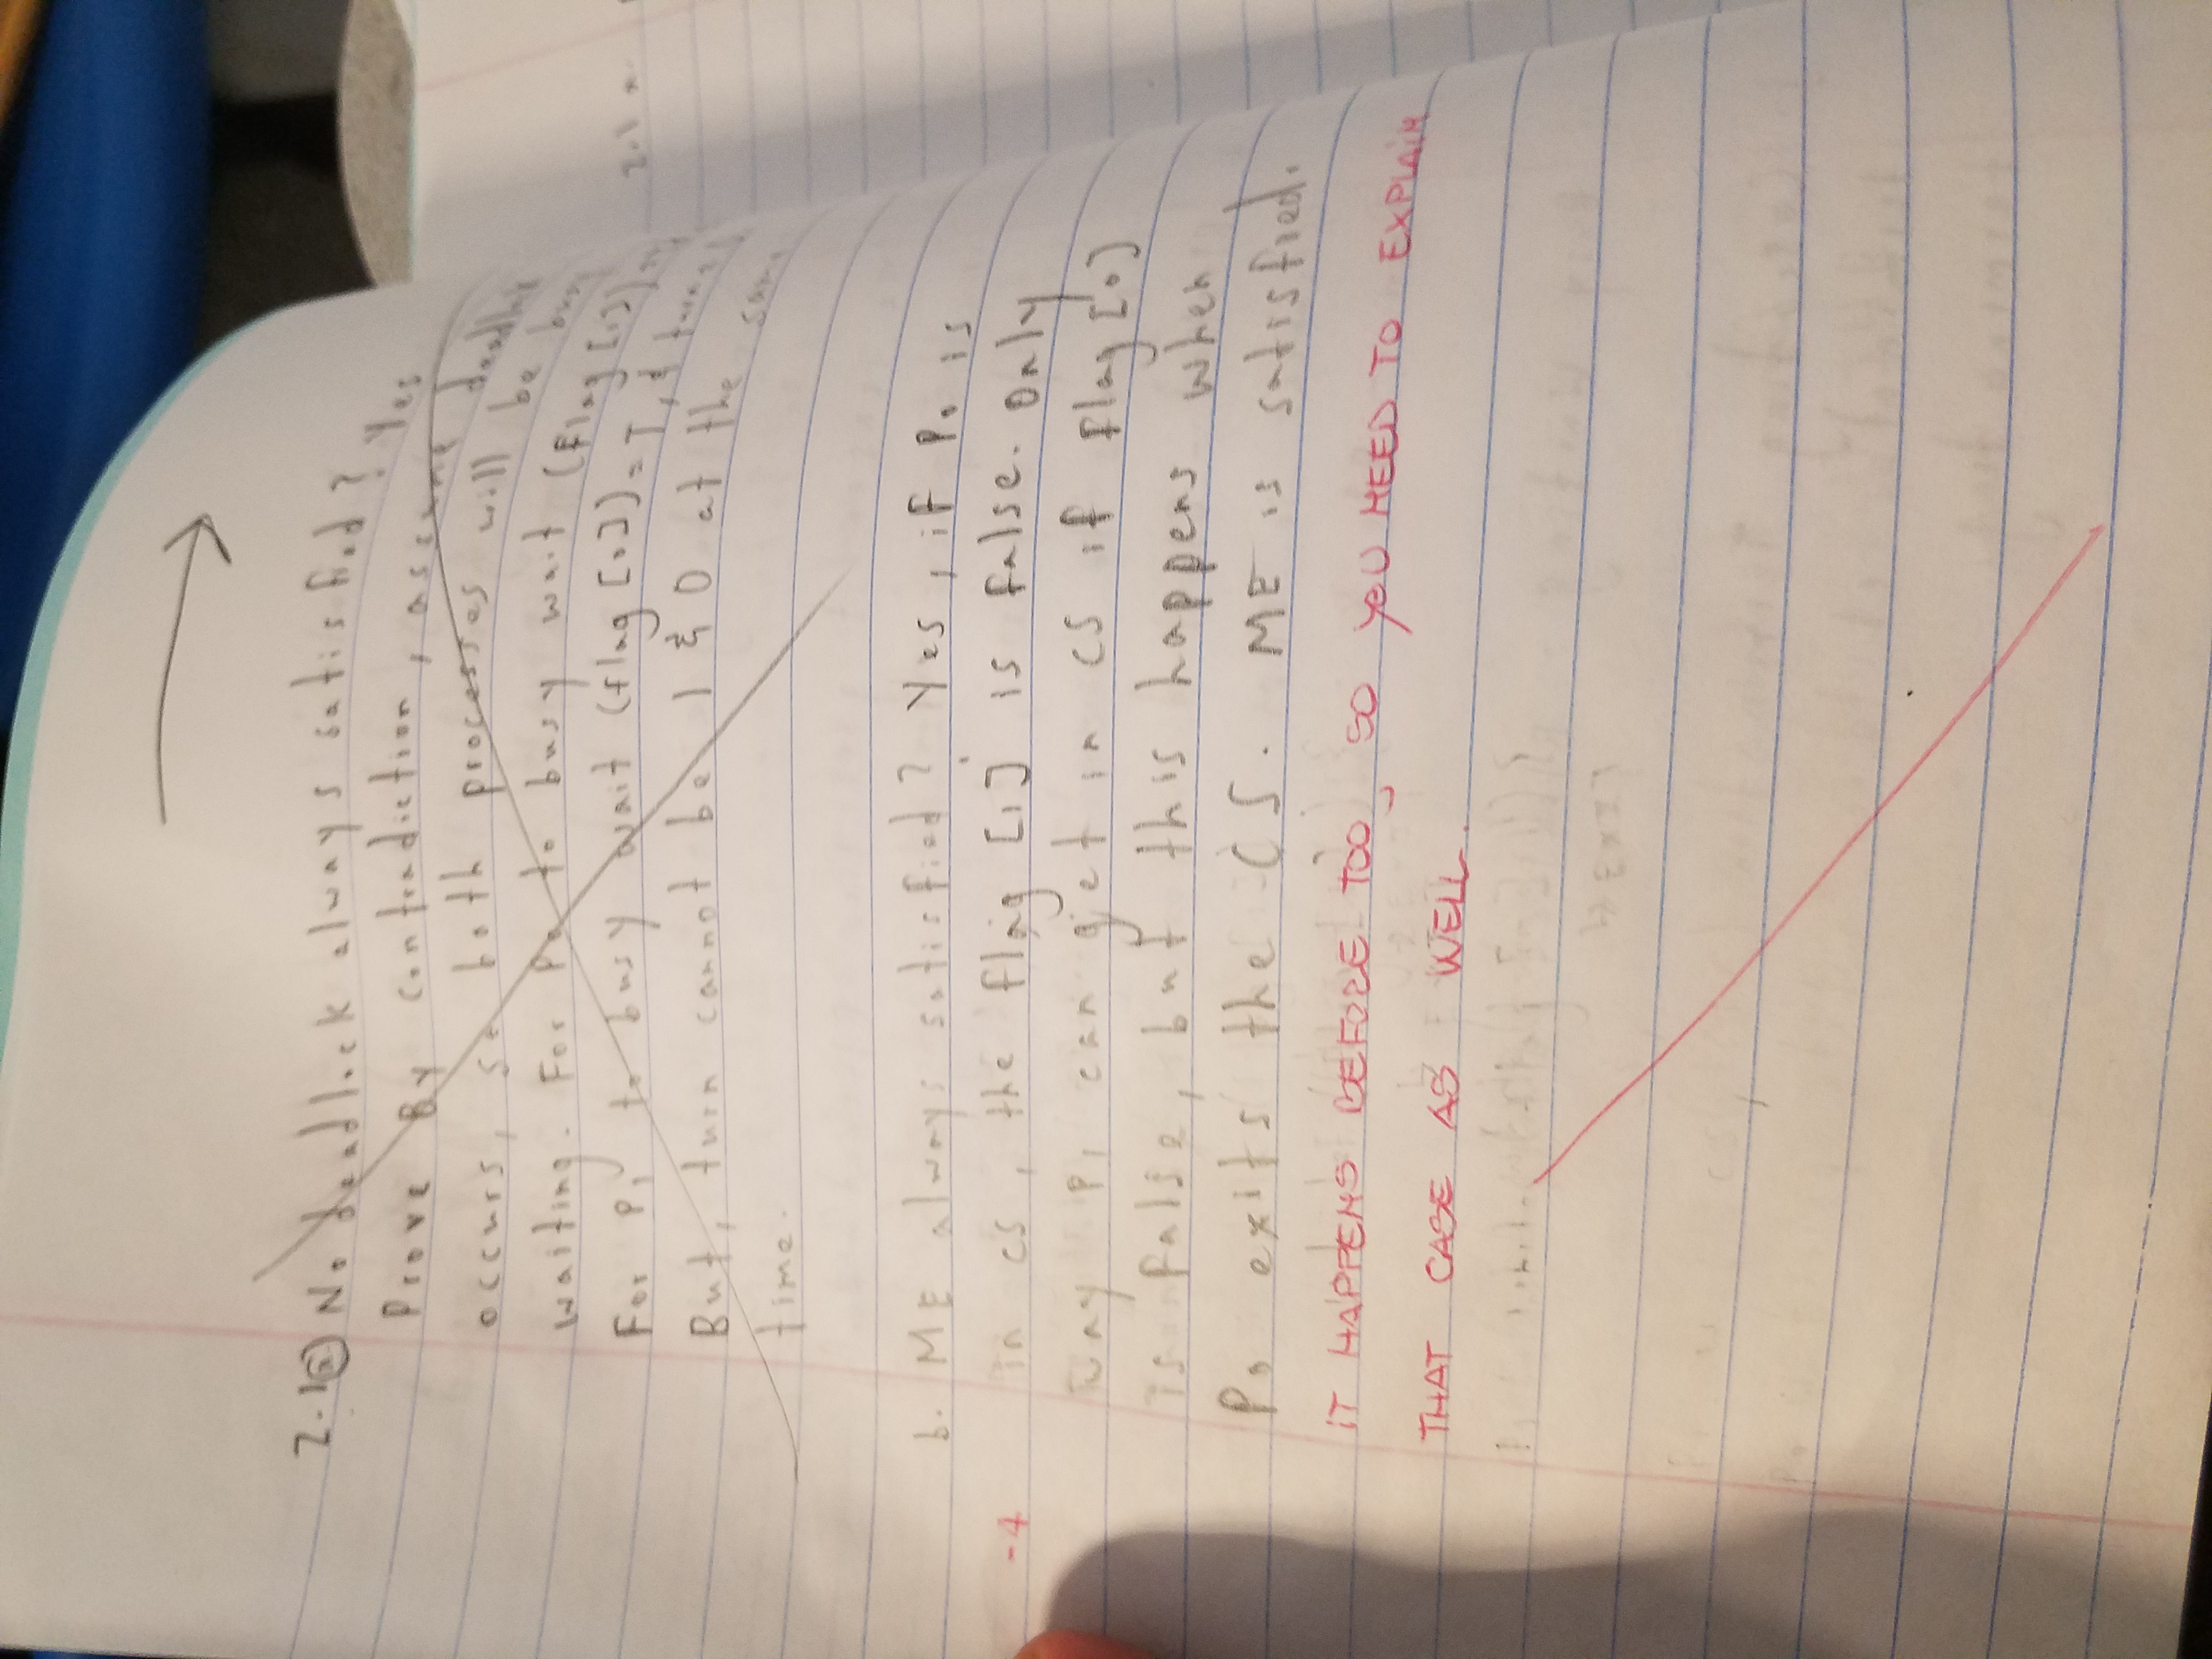 2.1 a No deadlock always satisfied? Yes
Prove By contradiction, assume deadlock
occurs, so both processes will be busy
waiting. For P0 to busy wait (Flag [1])
For P1 to busy wait (flag [0]) = T, & turn =
But, turn cannot be 1 & 0 at the same
time.
b. ME always satisfied? Yes, if P0 is
-4 in CS, the flag [1] is false. Only
way P1 can get in CS if flag [0]
is false, but this happens when
P0 exits the CS. ME is satisfied.
IT HAPPENS BEFORE TOO, SO YOU NEED TO EXPLAIN
THAT CASE AS WELL.